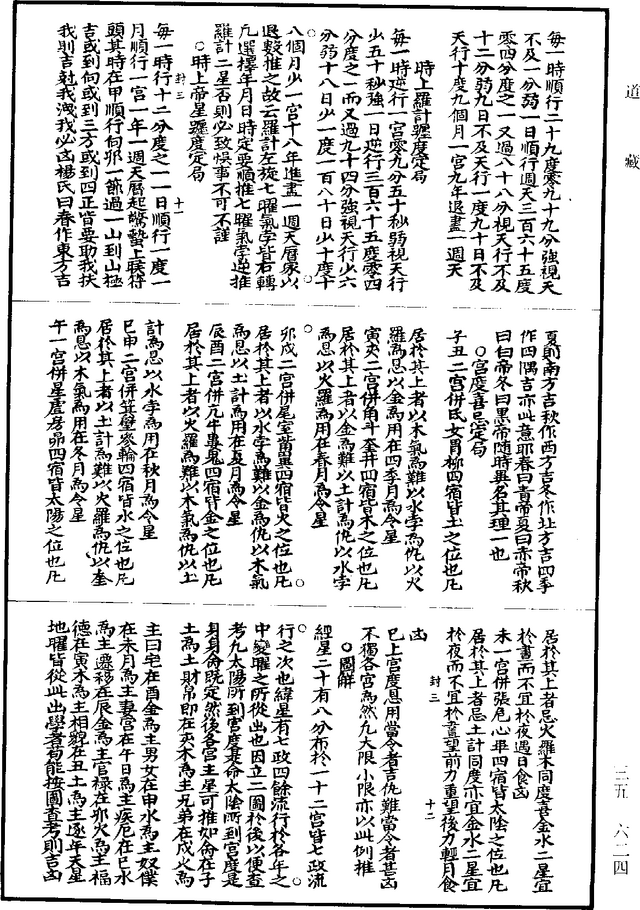 道藏
每一時順行二十九度零九十九分弱視天
不及一分弱一日順行週天三百六十五度
零四分度之一又過八十八分視天行不及
十二分弱九日不及天行一度九十日不及
天行十度九個月一宮九年退盡一週天
時上羅計躔度定局
每一時逆行一宮零九分五十秒弱視天行
少五十秒強一日逆行三百六十五度零四
分度之一而又過九十四分強視天行少六
分弱十八日少一度一百八十日少十度十
八個月少一宮十八年進盡一週天曆家以
退數推之故云羅計左旋七曜氣孛皆右轉
凡選擇年月日時定要順推七曜氣孛逆推
羅計二星否則必致悞事不可不謹
○時上帝星躔度定局
封三　十一
每一時行十二分度之一一日順行一度一
月順行一宮一年一週天曆起驚蟄上聯符
頭其時在甲順行向卯一節過一山到山極
吉或到向或到三方或到四正皆要助我扶
我則吉尅我洩我必凶楊氏曰春作東方吉
夏則南方吉秋作西方吉冬作北方吉四季
作四隅吉亦此意耶春曰青帝夏曰赤帝秋
曰白帝冬曰黑帝隨時異名其理一也
○宮度喜忌定局
子丑二宮併氐女胃柳四宿皆土之位也凡
居於其上者以木氣為難以水孛為仇以火
羅為恩以金為用在四季月為令星
寅亥二宮併角斗奎井四宿皆木之位也凡
居於其上者以金為難以土計為仇以水孛
為恩以火羅為用在春月為令星
卯戌二宮併尾室觜翼四宿皆火之位也凡
居於其上者以水孛為難以金為仇以木氣
為恩以土計為用在夏月為令星
辰酉二宮併亢牛婁鬼四宿皆金之位也凡
居於其上者以火羅為難以木氣為仇以土
計為恩以水孛為用在秋月為令星
巳申二宮併箕壁參軫四宿皆水之位也凡
居於其上者以土計為難以火羅為仇以金
為恩以木氣為用在冬月為令星
午一宮併星虛房昴四宿皆太陽之位也凡
居於其上者忌火羅木同度喜金水二星宜
於晝而不宜於夜遇日食凶
未一宮併張危心畢四宿皆太陰之位也凡
居於其上者忌土計同度亦宜金水二星宜
於夜而不宜於晝望前力重望後力輕月食
封三　十二
凶
已上宮度恩用當令者吉仇難當令者甚凶
不獨各宮為然九大限小限亦以此例推
○圖解
經星二十有八分布於一十二宮皆七政流
行之次也緯星有七政四餘流行於各年之
中變曜之所從出也因立二圖於後以便查
考九太陽所到宮度某命太陰所到宮度是
身身命既定然後各宮主星可推如命在子
土為主財帛即在亥木為主兄弟在戌火為
主田宅在酉金為主男女在申水為主奴僕
在未月為主妻宮在午日為主疾厄在巳水
為主遷移在辰金為主官祿在卯火為主福
德在寅木為主相貌在丑土為主逐年天星
地曜皆從此出學者苟能按圖查考則吉凶
三五　六二四